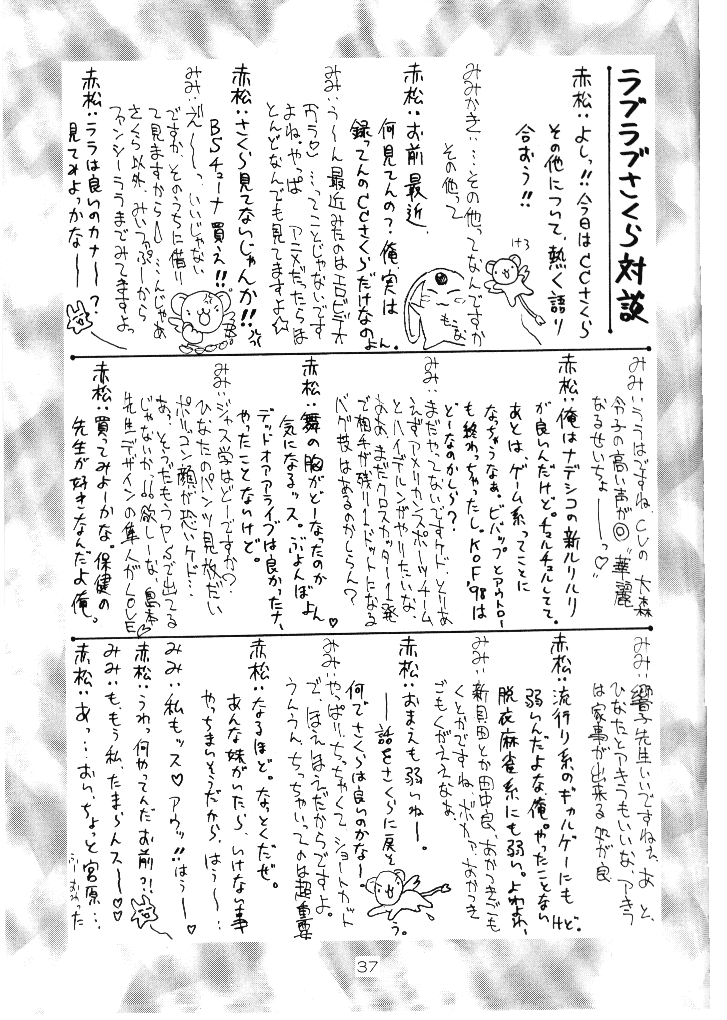 ラブラブさくら対談
赤松：よしっ!!今日はCCさくら
その他について、熱く語り
合おう!!
みみかき：…その他ってなんですか
その他って
けろ
もこな
赤松：お前最近、
何見てんの？俺、実は
録ってんのCCさくらだけなのよん。
みみ：う〜ん最近みたのは、エロビデオ
…ってことじゃないです
よね。やっぱ アニメだったらほ
とんどなんでも見てますよ☆
赤松：さくら見てないじゃんか!!
BSチューナ買え!!
みみ：え〜〜っ、いいじゃない
ですか。そのうちに借り
て見ますから〜…んじゃあ
さくら以外、みいファぷーから
ファンシーララまでみてますよっ
赤松：ララは良いのカナ〜？
見てみよっかな〜
みみ：ララはですね、CVの 大森
令子の高い声が◎ “華麗
なるせいちょ――っ♡”
赤松：俺はナデシコの新ルリルリ
が良いんだけど。チュルチュルしてて。
あとは、ゲーム系ってことに
なっちゃうなぁ。ビバップとアウトロー
も終わっちゃったし。KOF'98は
どーなのかしら？
みみ：まだやってないですケド、とりあ
えずアメリカンスポーツチーム
とハイデルンがやりたいな、
まだクロスカッター1発
で相手が残り1ドットになる
バグ技はあるのかしらん？
赤松：舞の胸がどーなったのか
気になるッス。ぷよんぽよん♡
デッドオアアライブは良かったナ、
やったことないけど。
みみ：ジャス学はどーですか？
ひなたのパンツ見放だい
ポリゴン顔が恐いケド…
あっ、そうだもうPSで出てる
じゃないか!!。欲しーな、島本
先生デザインの隼人がLOVE♡
赤松：買ってみよーかな。保健の
先生が好きなんだよ俺。
みみ：響子先生いいですねぇ、あと、
ひなたとアキラもいいな、アキラ
は家事が出来る 処が良
赤松：流行り系のギャルゲーにも
弱いんだよな、俺。やったことないけど。
脱衣麻雀系にも弱い。よわよわ、
みみ：新貝田とか田中良、あかつきごも
くとかですね、ボカァ、あかつき
ごもくがええなぁ
赤松：おまえも弱いねー。
―話をさくらに戻そう。
何でさくらは良いのかな〜。
みみ：やっぱり、ちっちゃくて、ショートカット
で、ほえほえだからですよ。
うんうん、ちっちゃいってのは超重要
赤松：なるほど。なっとくだぜ。
あんな妹がいたら、いけない事
やっちまいそうだから、はぅ〜…
みみ：私もッス♡ アウッ!!はぅー♡
赤松：うわっ何やってんだお前?!
みみ：も、もう私、たまらんス〜♡♡
赤松：あっ…おい、ちょっと宮原…
37